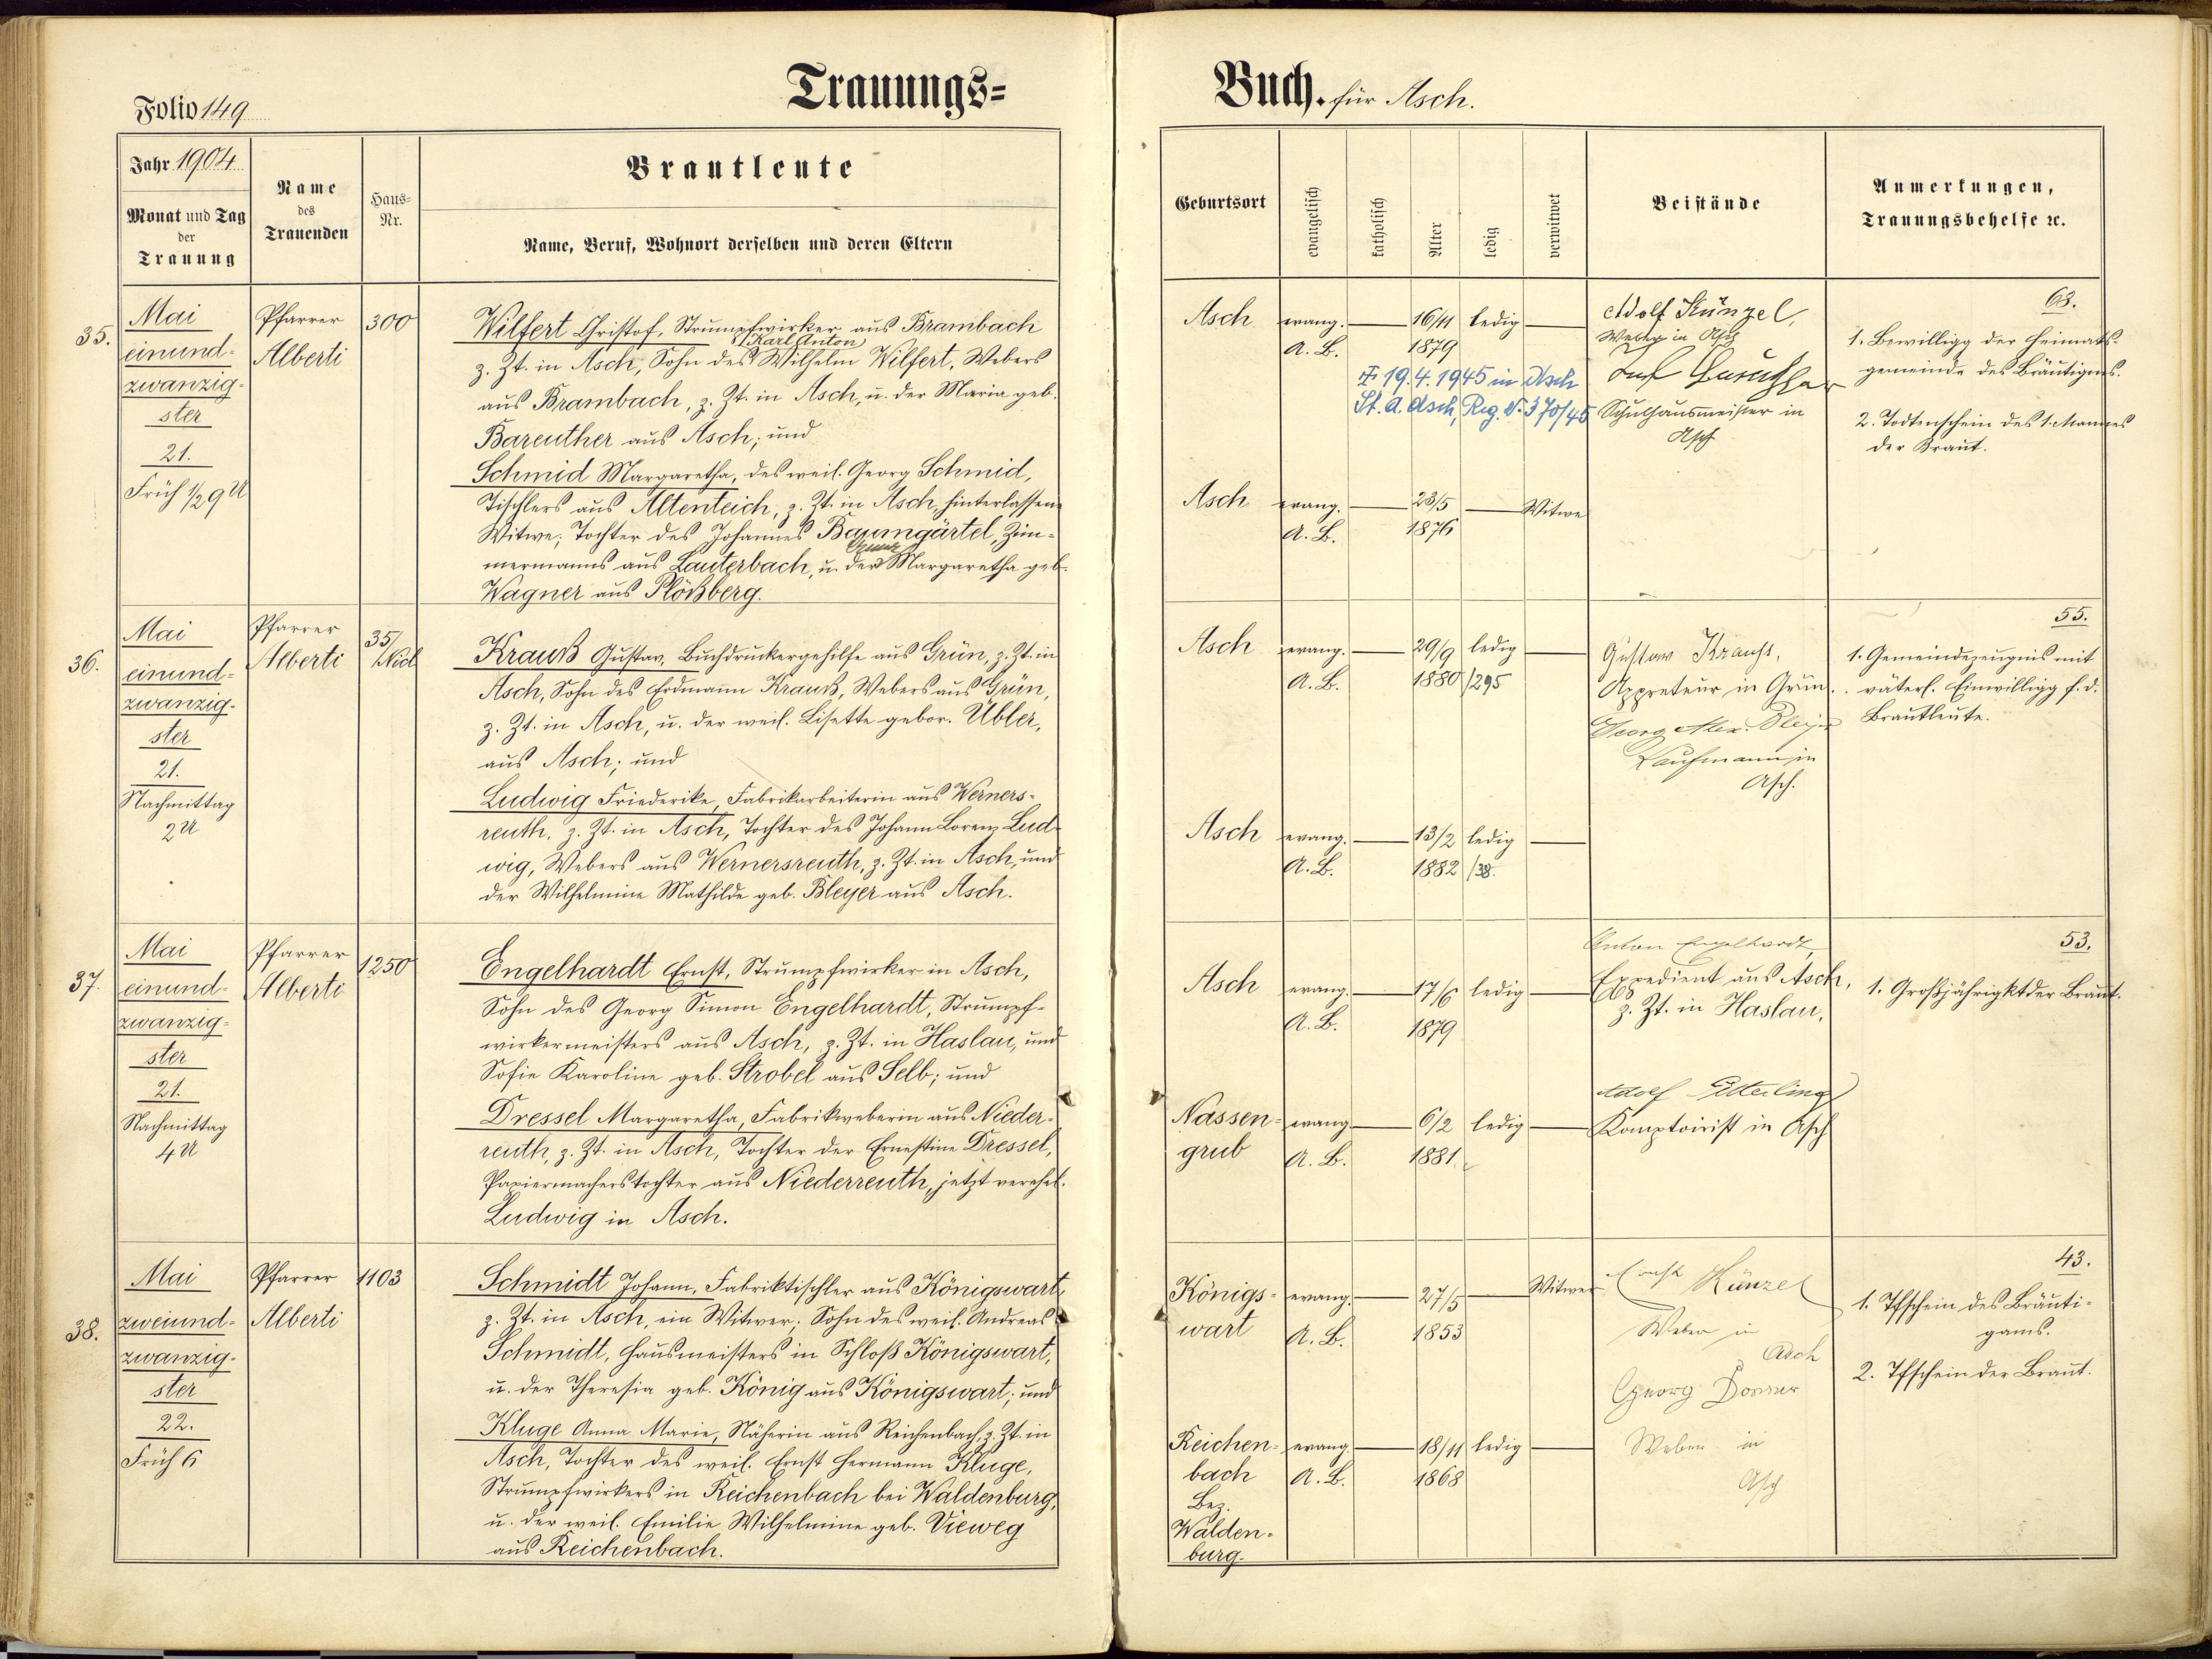 Folio 149
Trauungs=
Jahr 1904
Monat und Tag
der
Trauung
Name
des
Trauenden
Haus-
Nr.
Brautleute
Name, Beruf, Wohnort derselben und deren Eltern
35.
Mai
einund-
zwanzig-
ster
21.
Früh 1/2 9 U
Pfarrer
Alberti
300
Wilfert Christof, Strumpfwirker aus Brambach
Karl Anton
z. Zt. in Asch, Sohn des Wilhelm Wilfert, Webers
aus Brambach, z. Zt. in Asch, u. der Maria geb.
Bareuther aus Asch; und
Schmid Margaretha, des weil. Georg Schmid,
Tischlers aus Altenteich, z. Zt. in Asch, hinterlassene
Witwe; Tochter des Johannes Baumgärtel, Zim-
mermanns aus Lauterbach, u. der Margaretha geb.
Wagner aus Plößberg.
36.
Mai
einund-
zwanzig-
ster
21.
Nachmittag
2 U
Pfarrer
Alberti
35/
Nicl
Krauß Gustav, Buchdruckergehilfe aus Grün, z. Zt. in
Asch, Sohn des Erdmann Krauß, Webers aus Grün,
z. Zt. in Asch, u. der weil. Lisette gebor. Übler,
aus Asch; und
Ludwig Friederike, Fabrikarbeiterin aus Werners-
reuth, z. Zt. in Asch, Tochter des Johann Lorenz Lud-
wig, Webers aus Wernersreuth, z. Zt. in Asch, und
der Wilhelmine Mathilde geb. Bleyer aus Asch.
37.
Mai
einund-
zwanzig-
ster
21.
Nachmittag
4 U
Pfarrer
Alberti
1250
Engelhardt Ernst, Strumpfwirker in Asch,
Sohn des Georg Simon Engelhardt, Strumpf-
wirkermeisters aus Asch, z. Zt. in Haslau, und
Sofie Karoline geb. Strobel aus Selb; und
Dressel Margaretha, Fabrikweberin aus Nieder-
reuth, z. Zt. in Asch, Tochter der Ernestine Dressel,
Papiermacherstochter aus Niederreuth, jetzt verehel.
Ludwig in Asch.
38.
Mai
zweiund-
zwanzig-
ster
22.
Früh 6
Pfarrer
Alberti
1103
Schmidt Johann, Fabriktischler aus Königswart,
z. Zt. in Asch, ein Witwer; Sohn des weil. Andreas
Schmidt, Hausmeisters in Schloß Königswart,
u. der Theresia geb. König aus Königswart; und
Kluge Anna Marie, Näherin aus Reichenbach, z. Zt. in
Asch, Tochter des weil. Ernst Hermann Kluge,
Strumpfwirkers in Reichenbach bei Waldenburg,
u. der weil. Emilie Wilhelmine geb. Vieweg
aus Reichenbach.
Buch. für Asch.
Geburtsort
evangelisch
katholisch
Alter
ledig
verwitwet
Beistände
Anmerkungen,
Trauungsbehelfe ꝛc.
Asch evang. 16/11 ledig
A. B. 1879
✠ 19.4.1945 in Asch
St. A. Asch, Reg. N. 370/45
Adolf Künzel,
Weber in Asch
Schulhausmeister in
Asch
63.
1. Bewilligg der Heimats-
gemeinde des Bräutigms.
2. Todtenschein des 1. Mannes
der Braut.
Asch evang. 23/5 Witwe
A. B. 1876
Asch evang. 29/9 ledig
A. B. 1880/295
Gustav Krauss,
Appreteur in Grün.
Georg Alex. Bleyer
Kaufmann in
Asch.
55.
1. Gemeindezeugnis mit
väterl. Einwilligg f. d.
Brautleute.
Asch evang. 13/2 ledig
A. B. 1882/38.
Asch evang. 17/6 ledig
A. B. 1879
Anton Engelhardt
Expedient aus Asch,
z. Zt. in Haslau,
53.
1. Großjährigkt der Braut.
Nassen-
grub
evang. 6/2 ledig
A. B. 1881
Adolf Itterling
Komptoirist in Asch
Königs-
wart
evang. 27/5 Witwer
A. B. 1853
Ernst Künzel
Weber in
Asch
Georg Dorner
Weber in
Asch
43.
1. Tfschein des Bräuti-
gams.
2. Tfschein der Braut.
Reichen-
bach
Bez.
Walden-
burg.
evang. 18/11 ledig
A. B. 1868